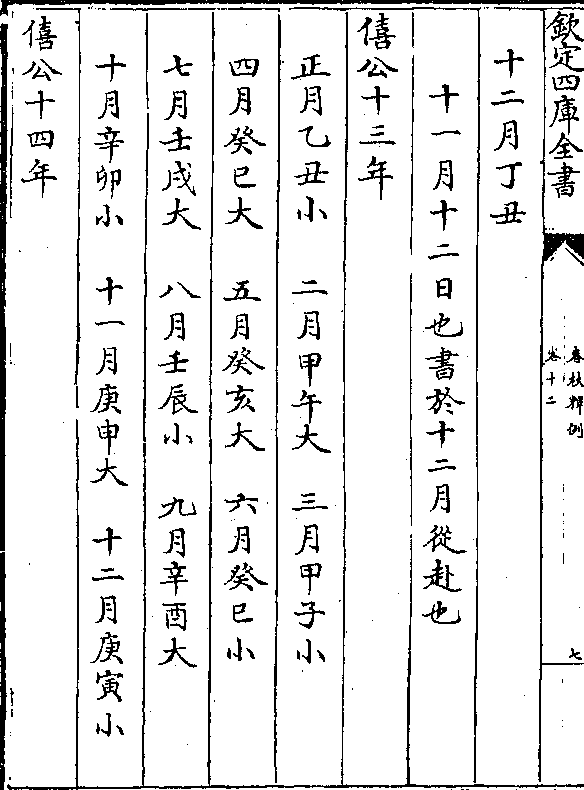 欽定四庫全書
春秋釋例
卷十二
七
十二月丁丑
十一月十二日也書於十二月從赴也
僖公十三年
正月乙丑小 二月甲午大 三月甲子小
四月癸巳大 五月癸亥大 六月癸巳小
七月壬戌大 八月壬辰小 九月辛酉大
十月辛卯小 十一月庚申大 十二月庚寅小
僖公十四年